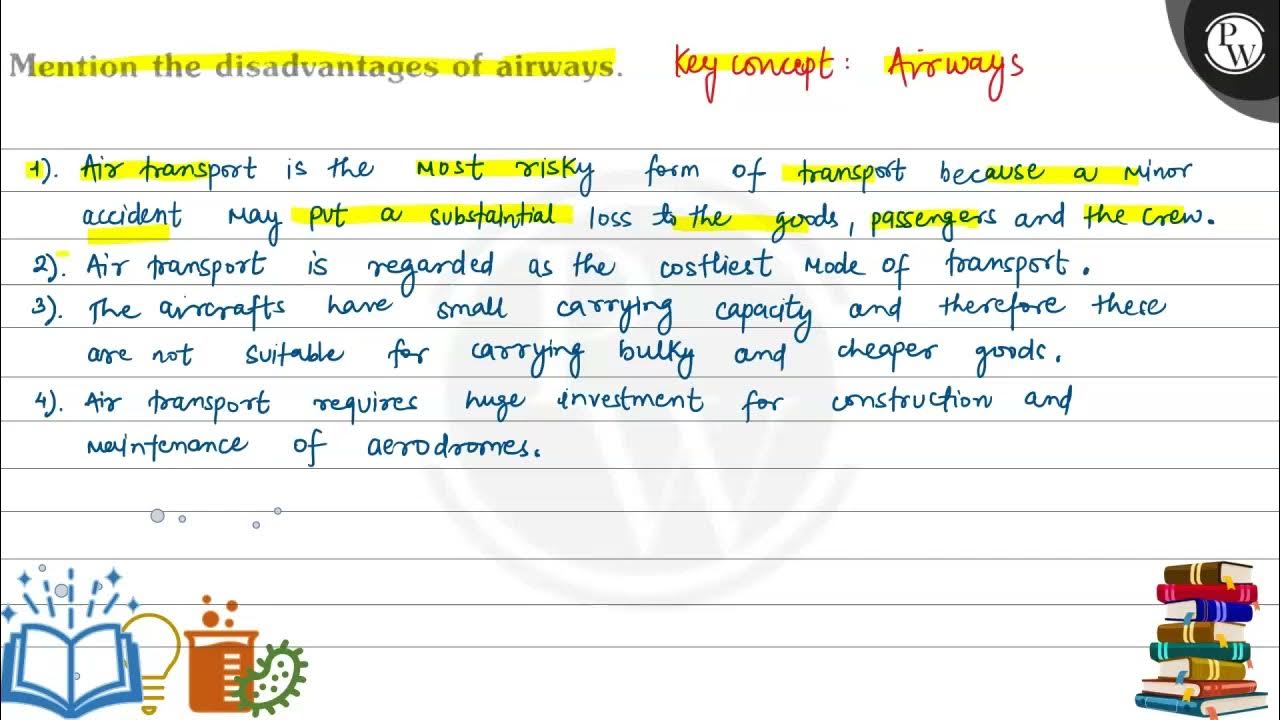 Mention the disadvantages of airways. Key concept: Airways
PW
1). Air transport is the most risky form of transport because a minor
accident may put a substaintial loss to the goods, passengers and the crew.
2). Air transport is regarded as the costliest mode of transport.
3). The aircrafts have small carrying capacity and therefore these
are not suitable for carrying bulky and cheaper goods.
4). Air transport requires huge investment for construction and
maintenance of aerodromes.